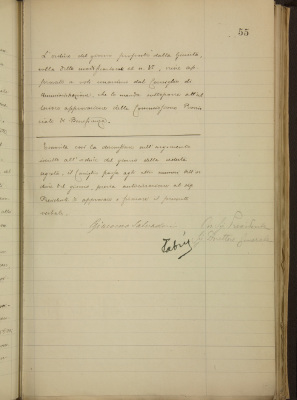 55
L'ordine del giorno proposto dalla Giunta,
colla detta modificazione al n. 15, viene ap
provato a voti unanimi dal Consiglio di
Amministrazione, che lo manda sottoporre all'ul
teriore approvazione della Commissione Provin
ciale di Beneficenza.
Esaurita così la discussione sull'argomento
inscritto all'ordine del giorno della seduta
segreta, il Consiglio passa agli altri numeri dell'or
dine del giorno, previa autorizzazione al sig.
Presidente di approvare e firmare il presente
verbale.
Giacomo Salvadori
Il Presidente
Fabris
Il Direttore Generale